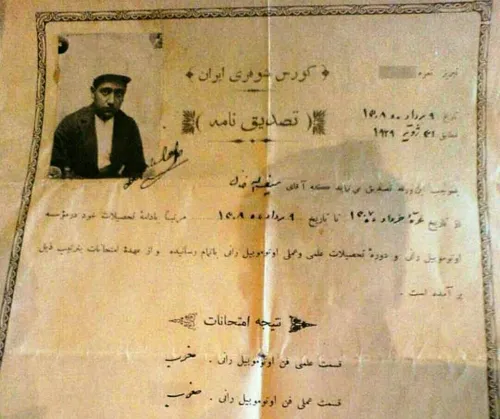 کورس شوفری ایران
تبریز نمره
تاریخ ۹ مرداد ماه ۱۳۰۸
مطابق ۳۱ ژویه ۱۹۲۹
( تصدیق نامه )
بموجب این ورقه تصدیق می نماید که آقای
از تاریخ خرداد ۱۳۰۷ تا تاریخ ۹ مرداد ماه ۱۳۰۸ مرتباً بادامهٔ تحصیلات خود در مؤسسه
اوتوموبیل رانی و دورهٔ تحصیلات علمی و عملی اوتوموبیل رانی باتمام رسانیده و از عهدهٔ امتحانات بترتیب ذیل
بر آمده است .
نتیجه امتحانات
قسمت علمی فن اوتوموبیل رانی . خوب
قسمت عملی فن اوتوموبیل رانی . خوب